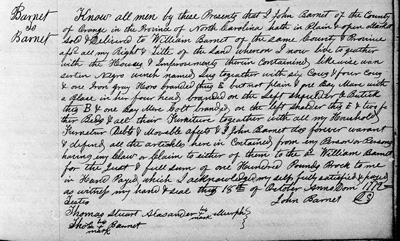 Barnet
to
Barnet
Know all men by these Presents that I John Barnet of the County
of Orange in the Province of North Carolina hath in Plain & open
sold & Delivered to William Barnet of the same County & Province
all my Right & Title of the land whereon I now live together
with the Houses & Improvements therein Contained, likewise one
Negro wench named together with six Cows & four
& one Iron gray Horse branded thus E but not plain & one Bay Mare with
a Blaze in her four head branded on the left & Buttock
thus B & one Bay Mare Colt branded, on the left sholder thus E &
Beds & all their Furniture together with all my Houshold
Furneture Debts & Movable & I John Barnet do forever warant
& defend all the artickles here in Contained from any Person or Persons
having any Law or plain to either of them to the sd. William Barnet
for the Just & full sum of one Hundred Pounds Prock to me
in Hand Payed which I acknowledged my self fully satisfied & payed
as witness my hand & seal this 18th of October Anno Dom
Testes
John Barnet
Thomas Stuart Alexander his mark
his mark Barnet